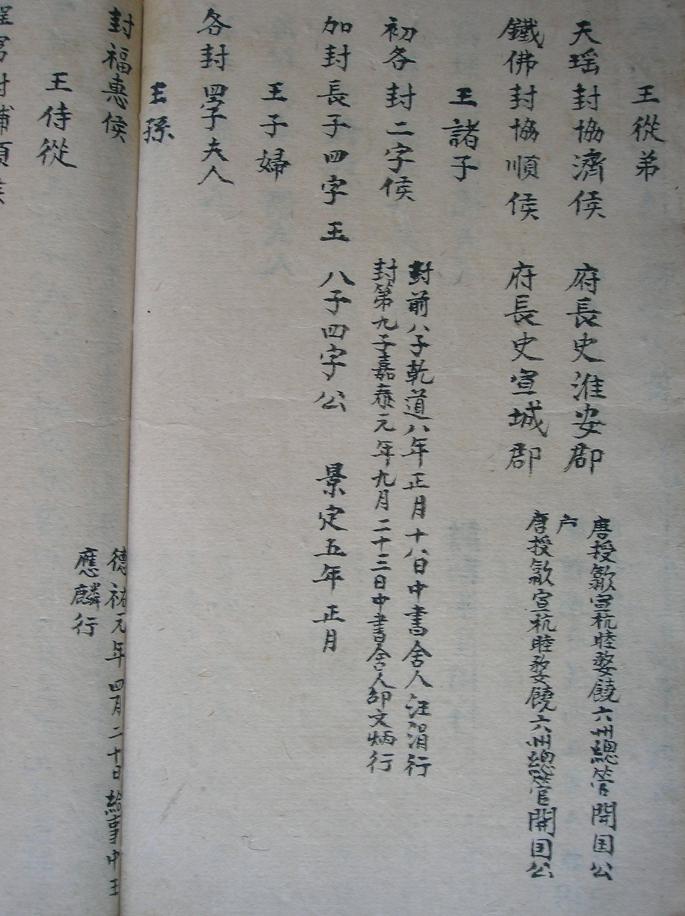 王從弟
天瑶封協濟侯 府長史淮安郡 唐授歙宣杭睦婺饒六州總管開国公
户
鐵佛封協順侯 府長史宣城郡 唐授歙宣杭睦婺饒六州總管開国公
王諸子
初各封二字侯 封前八子乾道八年正月十八日中書舍人汪涓行
封第九子嘉泰元年九月二十三日中書舍人邵文炳行
加封長子四字王 八子四字公 景定五年正月
王子婦
各封四字夫人
王孫
封福惠侯 德祐元年四月二十日給事中王
應麟行
王侍從